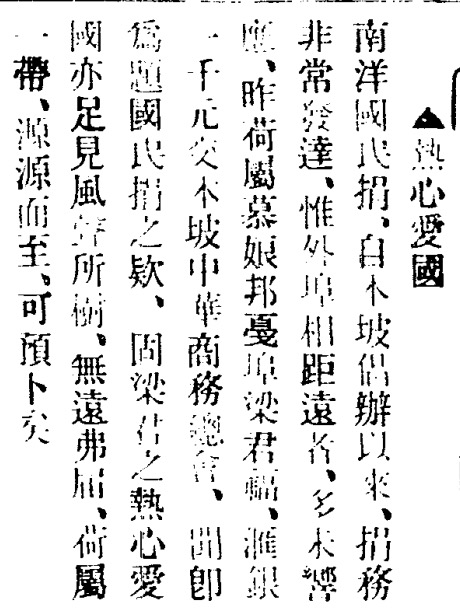 ▲熱心愛國
南洋國民捐、自本坡倡辦以來、捐務
非常發達、惟外埠相距遠者、多未響
應、昨荷屬慕娘邦戞埠梁君輻、滙銀
一千元交本坡中華商務總會、聞卽
爲題國民捐之欵、固梁君之熱心愛
國亦足見風聲所樹、無遠弗屆、荷屬
一帶、源源而至、可預卜矣